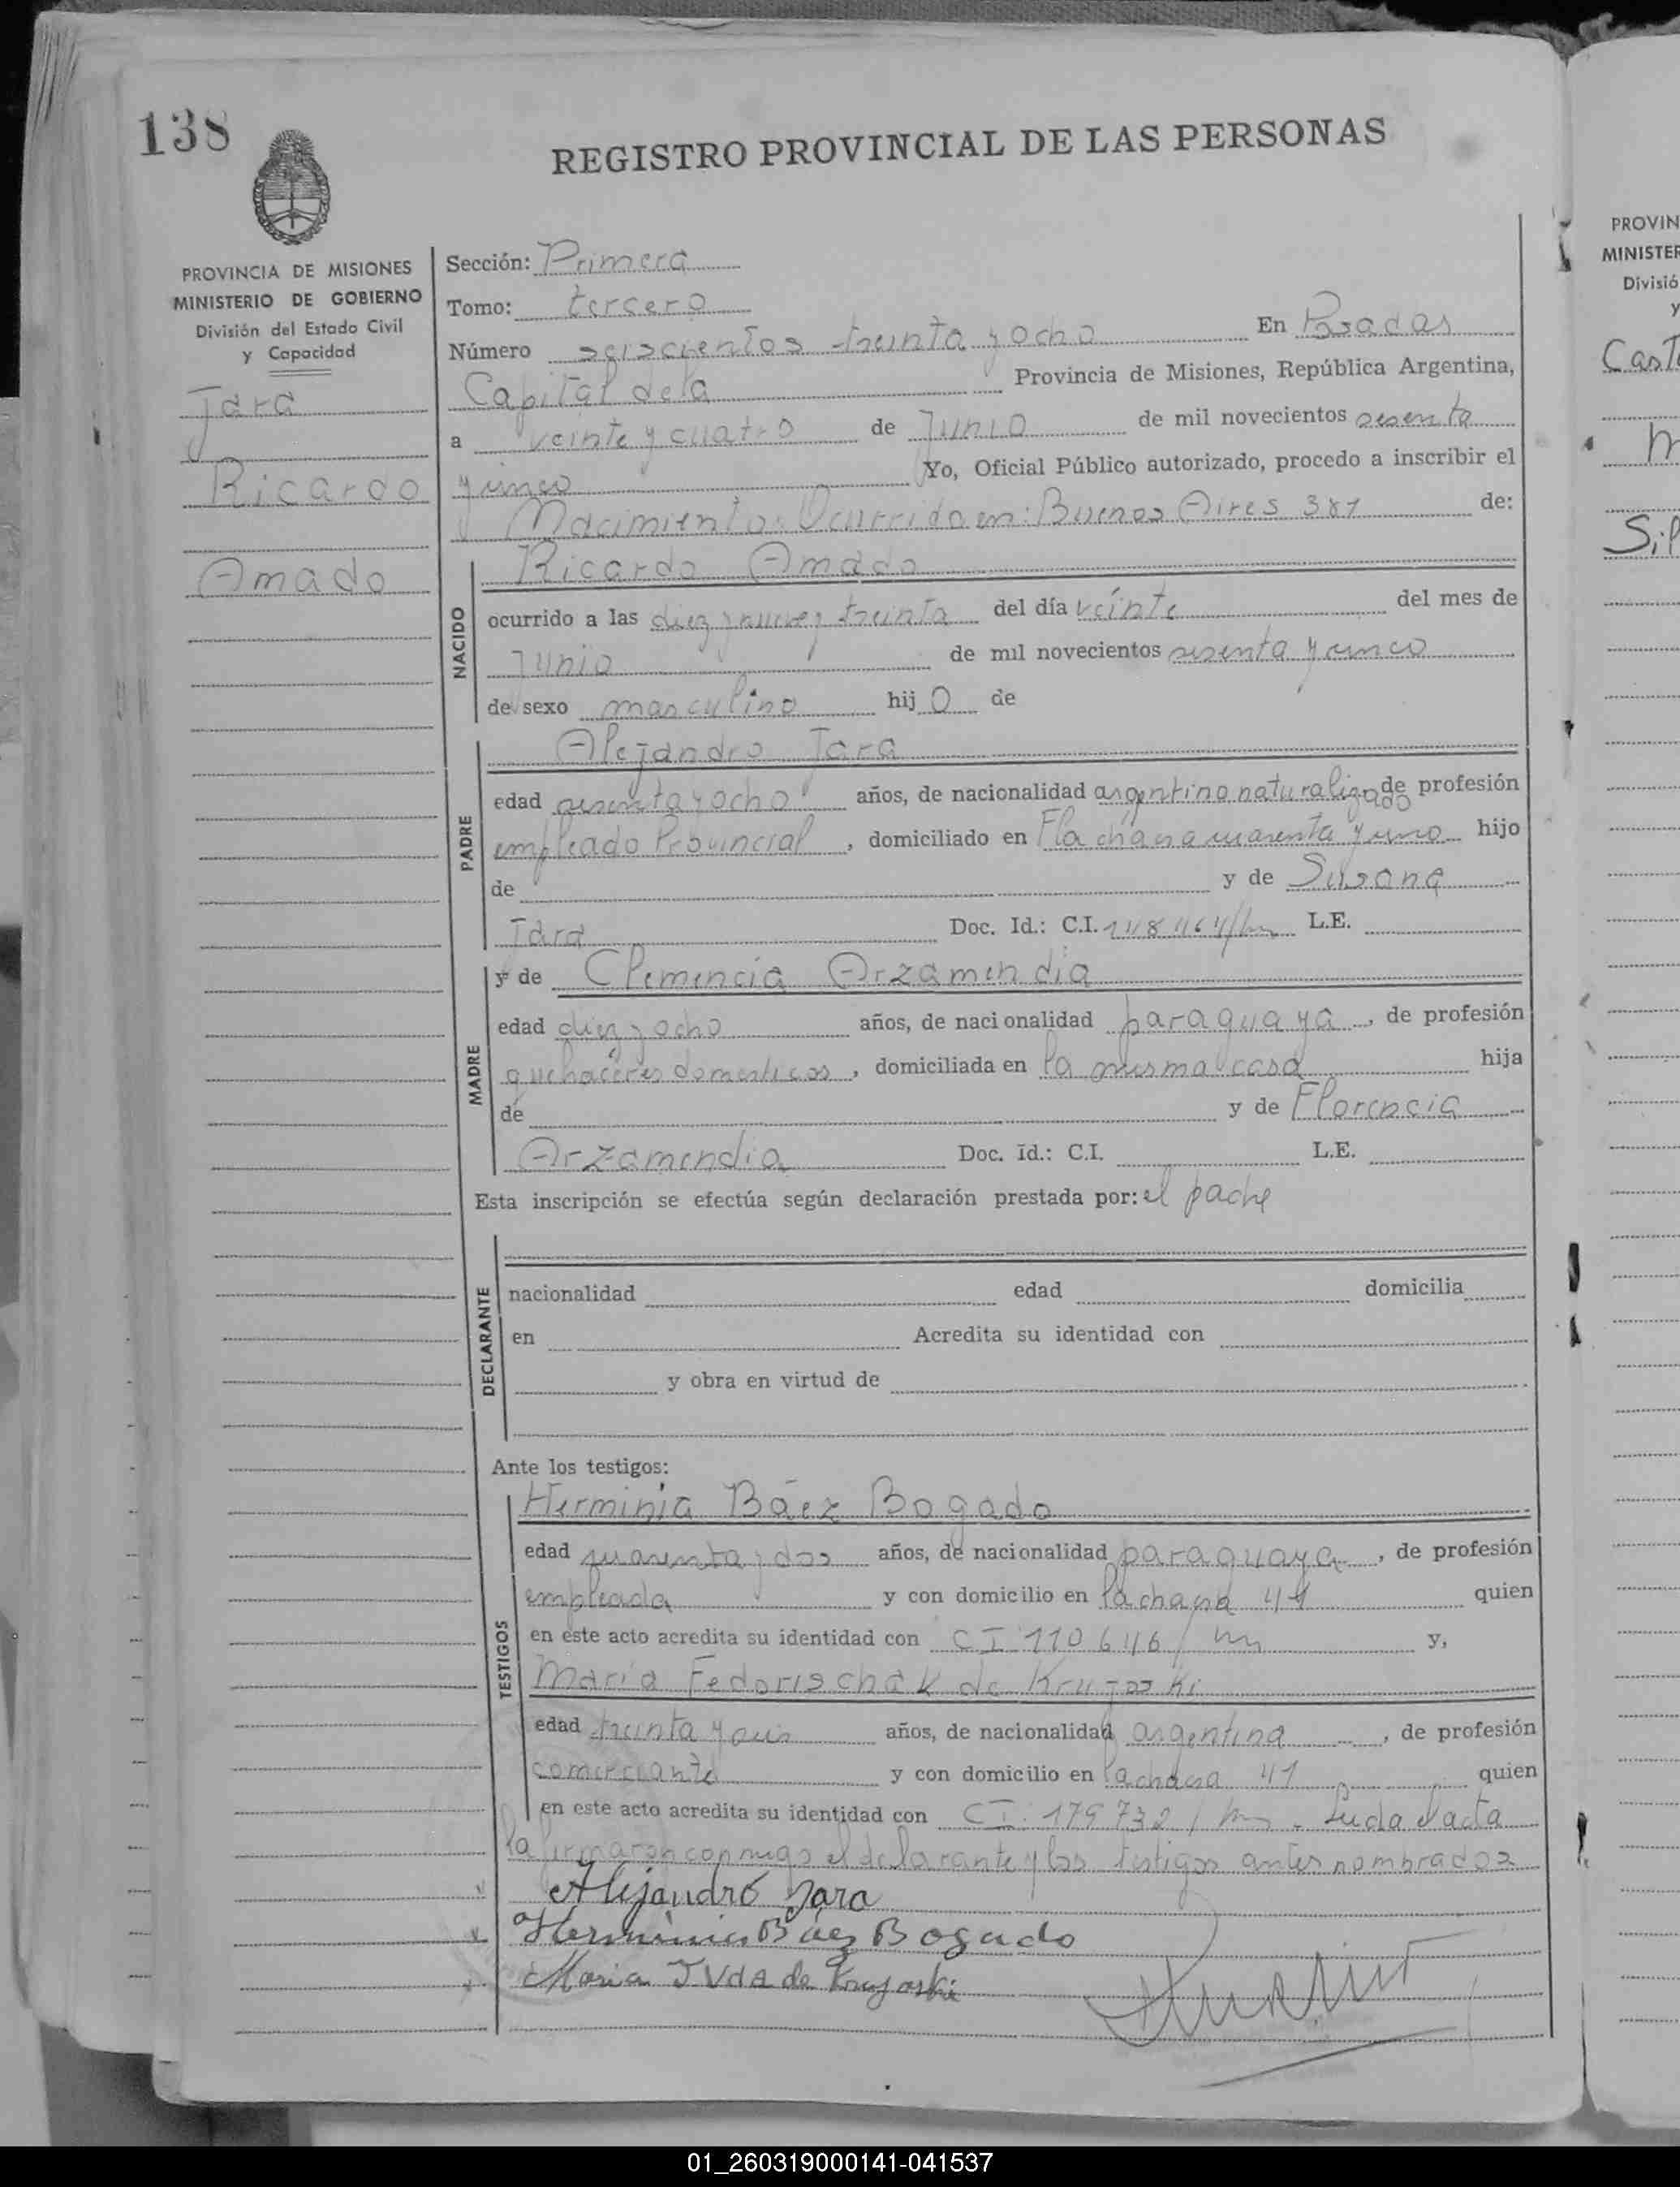 138
REGISTRO PROVINCIAL DE LAS PERSONAS
PROVINCIA DE MISIONES
MINISTERIO DE GOBIERNO
División del Estado Civil
y Capacidad
Jara
Ricardo
Amado
Sección: Primera
Tomo: tercero
Número seiscientos treinta y ocho En Posadas
Capital de la Provincia de Misiones, República Argentina,
a veinte y cuatro de Junio de mil novecientos sesenta
y cinco Yo, Oficial Público autorizado, procedo a inscribir el
Nacimiento. Ocurrido en: Buenos Aires 381 de:
NACIDO
Ricardo Amado
ocurrido a las diez y nueve y treinta del día veinte del mes de
Junio de mil novecientos sesenta y cinco
de sexo masculino hijo de
PADRE
Alejandro Jara
edad sesenta y ocho años, de nacionalidad argentino naturalizado de profesión
empleado Provincial, domiciliado en La chacra cuarenta y uno hijo
de y de Susana
Jara Doc. Id.: C.I. L.E.
MADRE
y de Clemencia Arzamendia
edad diez y ocho años, de nacionalidad paraguaya, de profesión
quehaceres domesticos, domiciliada en la misma casa hija
de y de Florencia
Arzamendia Doc. Id.: C.I. L.E.
Esta inscripción se efectúa según declaración prestada por: el padre
DECLARANTE
nacionalidad edad domicilia
en Acredita su identidad con
y obra en virtud de
Ante los testigos:
TESTIGOS
Herminia Báez Bogado
edad cuarenta y dos años, de nacionalidad paraguaya, de profesión
empleada y con domicilio en la chacra 41 quien
en este acto acredita su identidad con CI 110646 / y,
Maria Fedorischak de Krujoski
edad treinta y seis años, de nacionalidad argentina, de profesión
comerciante y con domicilio en la chacra 41 quien
en este acto acredita su identidad con CI. 179732 / Leida el acta
la firmaron conmigo el declarante y los testigos antes nombrados
Alejandro Jara
Herminia Báez Bogado
Maria J Vda de Krujoski
PROVIN
MINISTER
Divisió
y
01_260319000141-041537